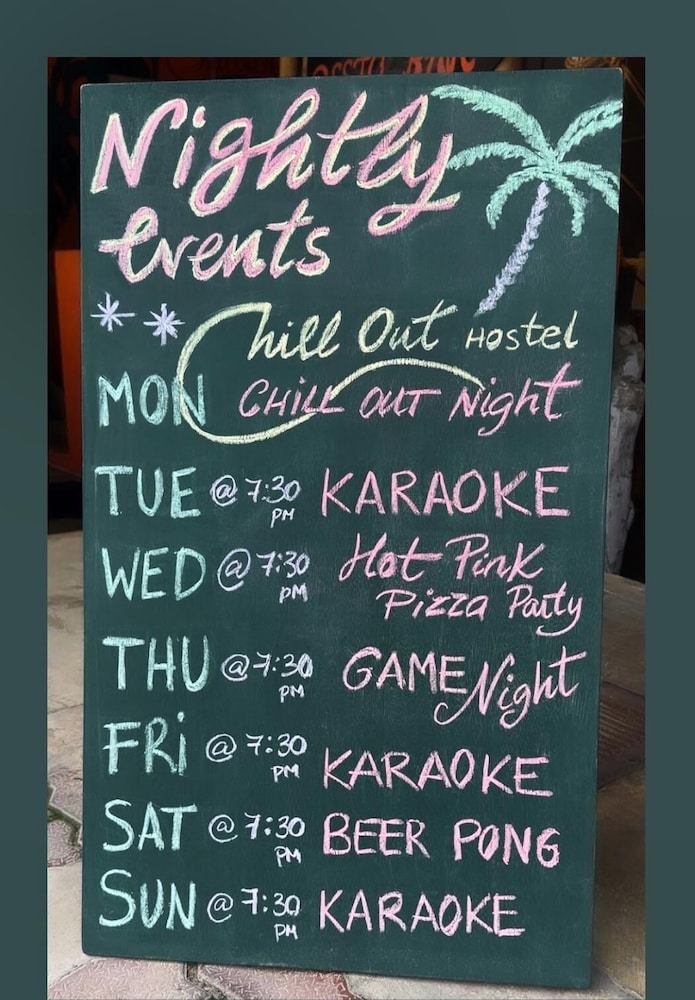 Nightly
events
Chill Out Hostel
MON CHILL OUT Night
TUE @ 7:30 PM KARAOKE
WED @ 7:30 PM Hot Pink
Pizza Party
THU @ 7:30 PM GAME Night
FRi @ 7:30 PM KARAOKE
SAT @ 7:30 PM BEER PONG
SUN @ 7:30 PM KARAOKE